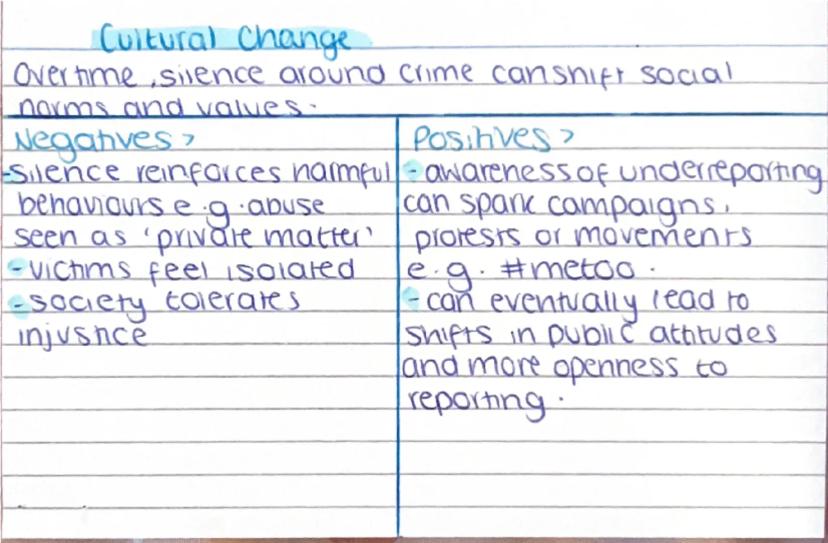 Cultural Change
Overtime, silence around crime can shift social
norms and values.
Negatives >
-Silence reinforces harmful
behaviours e.g. abuse
seen as 'private matter'
-victims feel isolated
-society tolerates
injustice
Positives >
-awareness of underreporting
can spark campaigns,
protests or movements
e.g. #metoo.
-can eventually lead to
shifts in public attitudes
and more openness to
reporting.